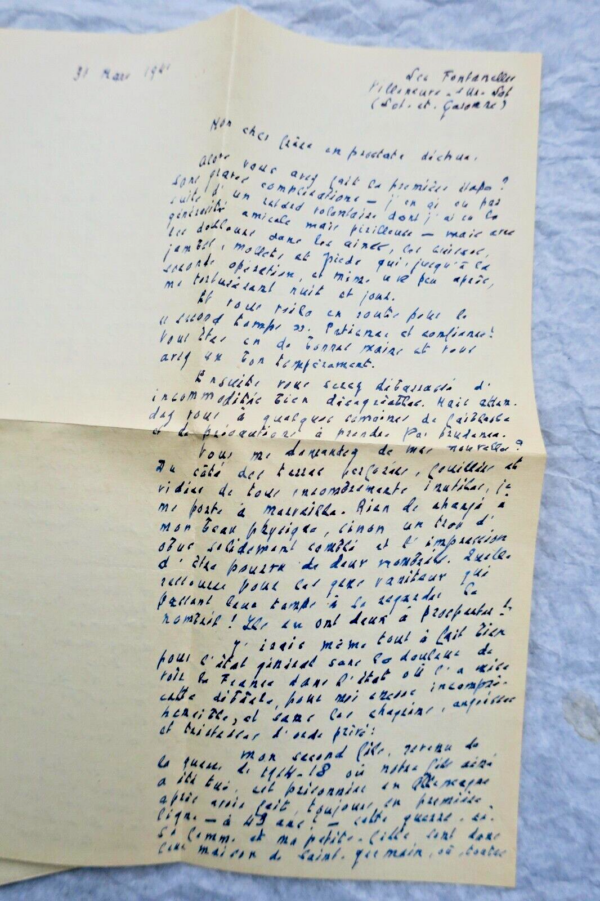 31 Mars 1941
Les Fontanelles
Villeneuve-sur-Lot
(Lot-et-Garonne)
Mon cher frère en prostate déchue,
Alors vous avez fait la première étape?
Sans graves complications — j'en ai eu pas
suite d'un retard volontaire dont j'ai eu la
généralité amicale mais périlleuse — mais avec
des douleurs dans les aines, les cuisses,
jambes, mollets et pieds qui, jusqu'à la
seconde opération, et même un peu après,
me torturèrent nuit et jour.
Et vous voilà en route pour le
« second temps ». Patience et confiance!
Vous êtes en de bonnes mains et vous
avez un bon tempérament.
Ensuite vous serez débarrassé d'
incommodités bien désagréables. Mais atten-
dez vous à quelques semaines de faiblesse
et de précautions à prendre par prudence.
Vous me demandez de mes nouvelles?
Du côté des terres perforées, fouillées et
vidées de tous encombrements inutiles, ça
me porte à merveille. Rien de changé à
mon beau physique, sinon un trou d'
obus solidement comblé et l'impression
d'être pourvu de deux nombrils. Quelle
ressource pour les gens vaniteux qui
passent leur temps à se regarder le
nombril! Ils en ont deux à prospecter!
J'irais même tout à fait bien
pour l'état général sans la douleur de
voir la France dans l'état où l'a mise
cette défaite, pour moi encore incompré-
hensible, et sans les chagrins, angoisses
et tristesses d'ordre privé:
mon second fils, revenu de
la guerre de 1914-18 où notre fils aîné
a été tué, est prisonnier en Allemagne
après avoir fait, toujours en première
ligne — à 49 ans! — cette guerre-ci.
Sa femme et ma petite-fille sont dans
leur maison de Saint-Germain, où, toutes